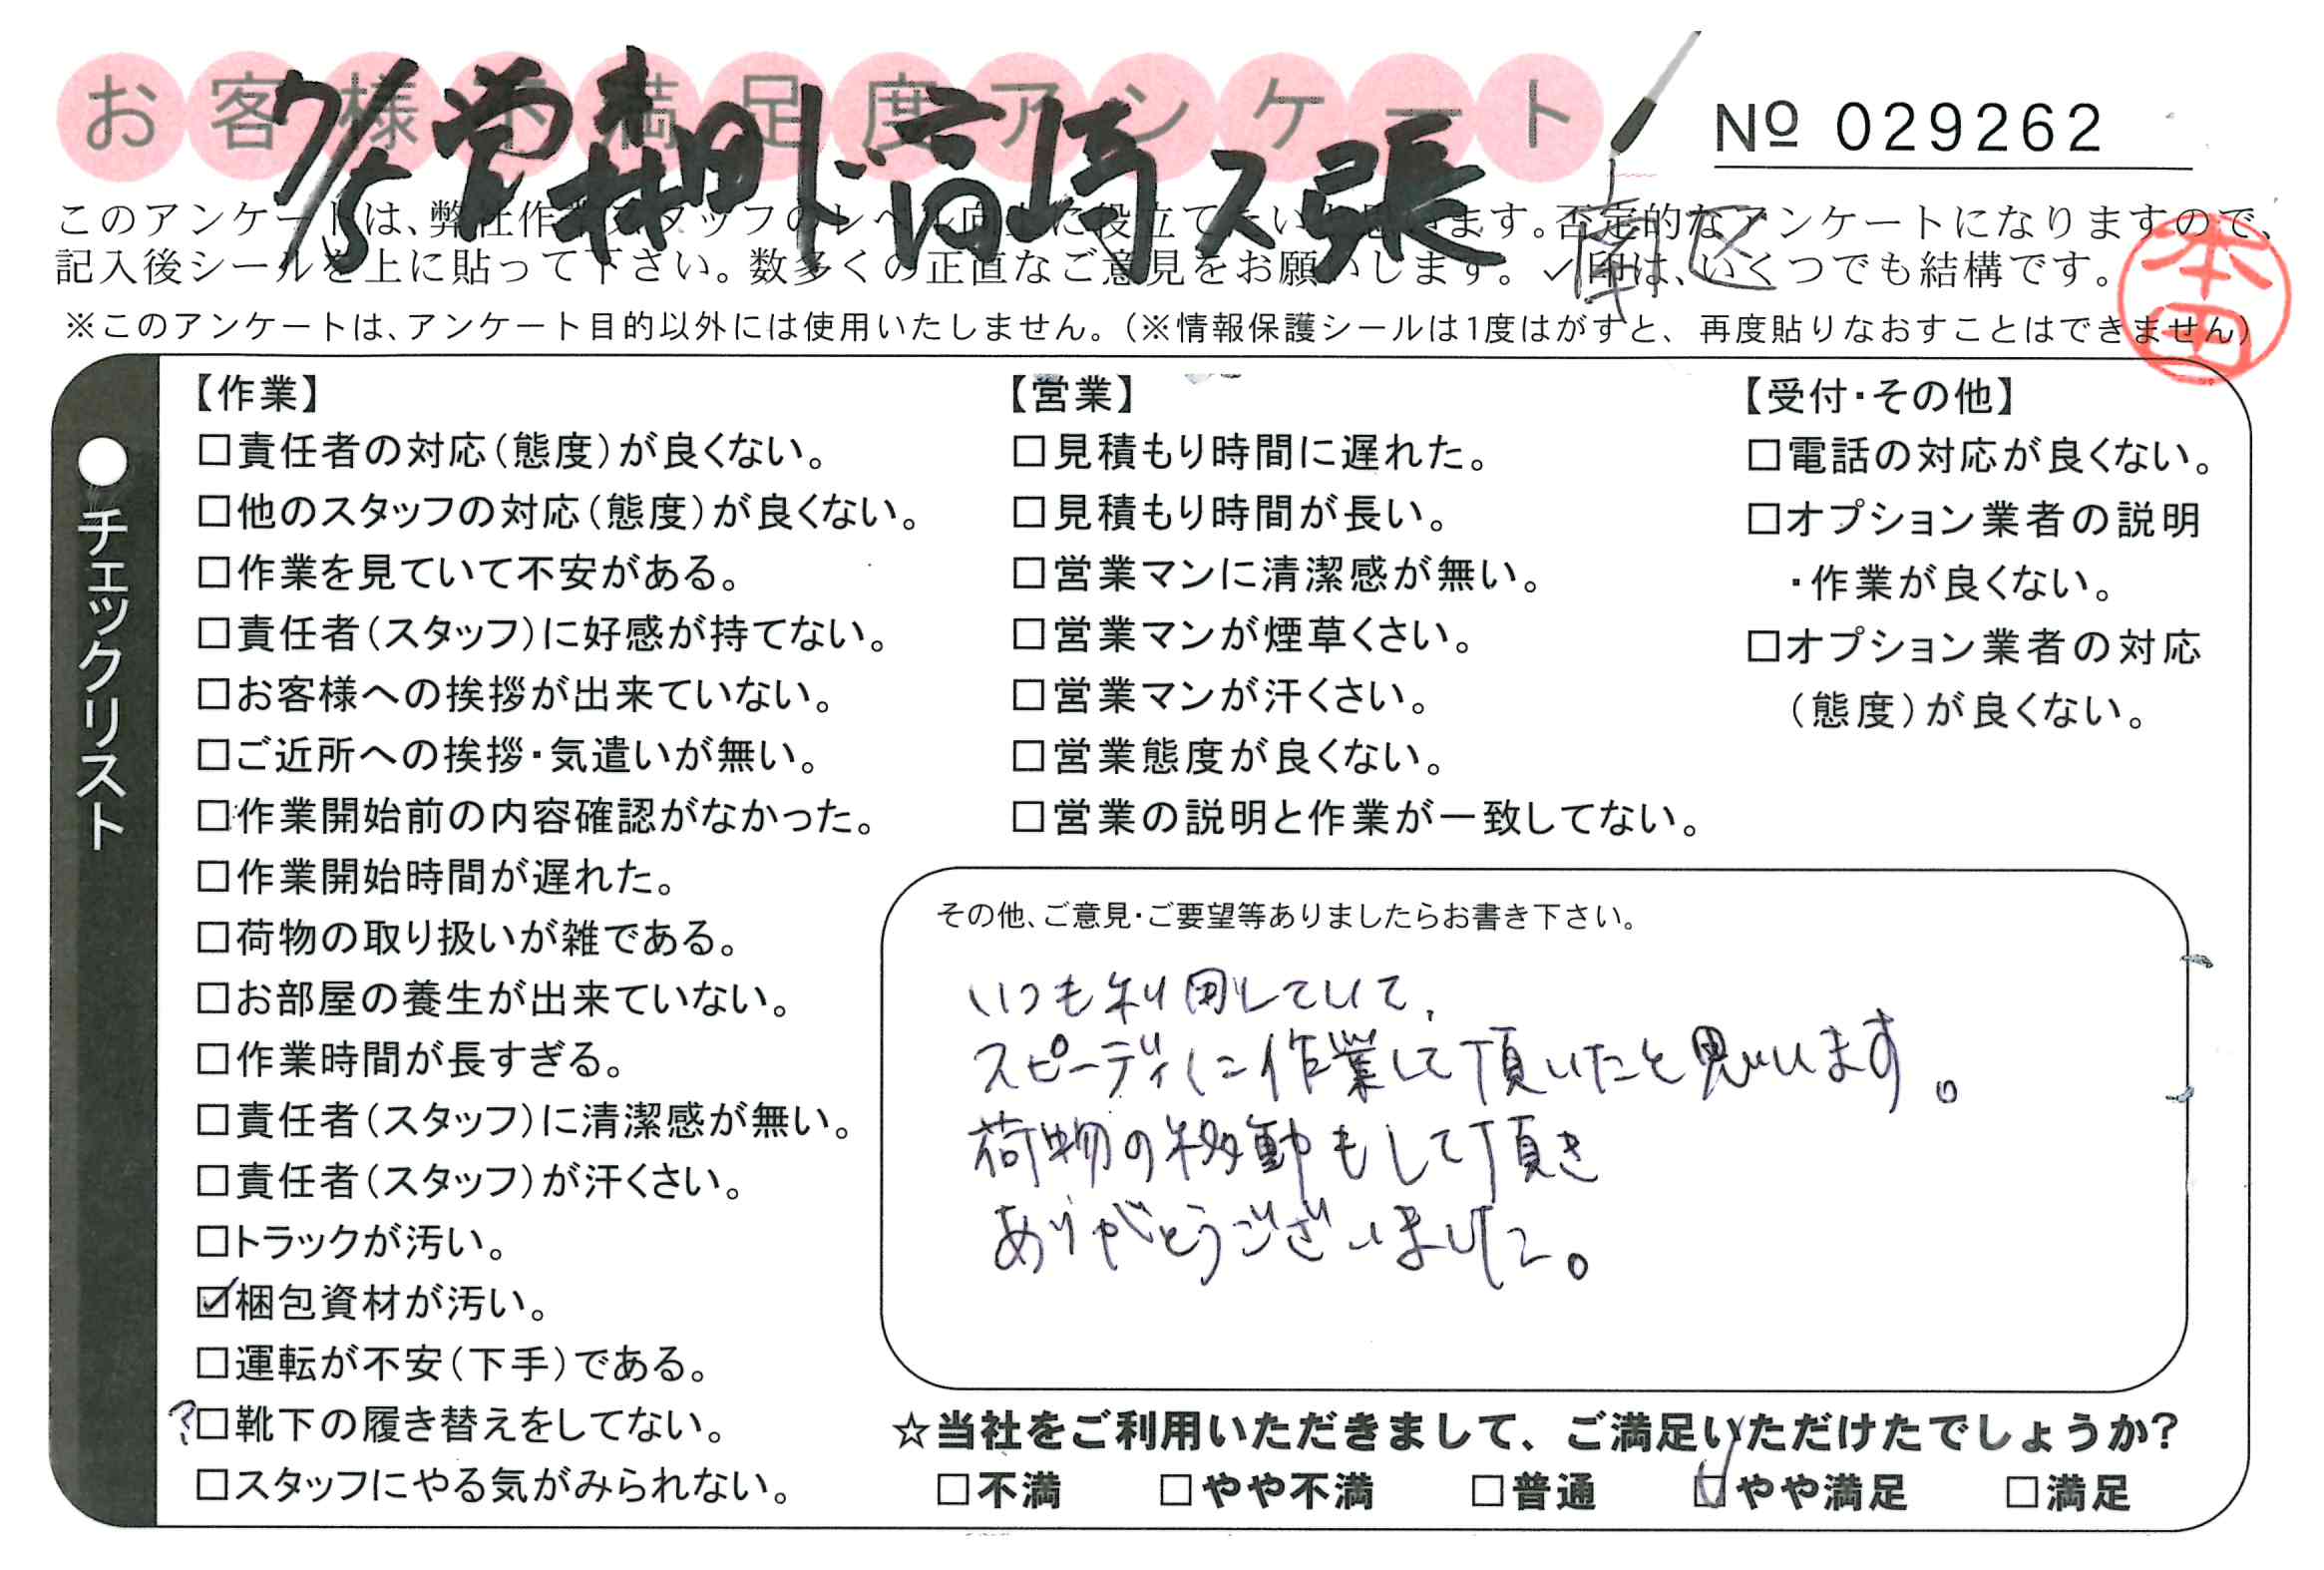 お客様不満足度アンケート
7/5 営 森田 ド 高崎 ス 張
南区
№ 029262
このアンケートは、弊社作業スタッフのレベル向上に役立てたいと思います。否定的なアンケートになりますので、
記入後シールを上に貼って下さい。数多くの正直なご意見をお願いします。✓印は、いくつでも結構です。
本田
※このアンケートは、アンケート目的以外には使用いたしません。(※情報保護シールは1度はがすと、再度貼りなおすことはできません)
●チェックリスト
【作業】
□責任者の対応(態度)が良くない。
□他のスタッフの対応(態度)が良くない。
□作業を見ていて不安がある。
□責任者(スタッフ)に好感が持てない。
□お客様への挨拶が出来ていない。
□ご近所への挨拶・気遣いが無い。
□作業開始前の内容確認がなかった。
□作業開始時間が遅れた。
□荷物の取り扱いが雑である。
□お部屋の養生が出来ていない。
□作業時間が長すぎる。
□責任者(スタッフ)に清潔感が無い。
□責任者(スタッフ)が汗くさい。
□トラックが汚い。
☑梱包資材が汚い。
□運転が不安(下手)である。
?□靴下の履き替えをしてない。
□スタッフにやる気がみられない。
【営業】
□見積もり時間に遅れた。
□見積もり時間が長い。
□営業マンに清潔感が無い。
□営業マンが煙草くさい。
□営業マンが汗くさい。
□営業態度が良くない。
□営業の説明と作業が一致してない。
【受付・その他】
□電話の対応が良くない。
□オプション業者の説明
・作業が良くない。
□オプション業者の対応
(態度)が良くない。
その他、ご意見・ご要望等ありましたらお書き下さい。
いつも利用していて、
スピーディに作業して頂いたと思います。
荷物の移動もして頂き
ありがとうございました。
☆当社をご利用いただきまして、ご満足いただけたでしょうか?
□不満 □やや不満 □普通 ☑やや満足 □満足